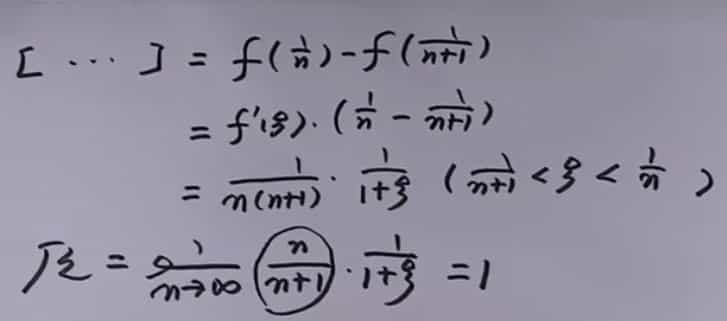 [ ⋯ ] = f(1/n) - f(1/(n+1))
= f'(ξ)·(1/n - 1/(n+1))
= 1/(n(n+1)) · 1/(1+ξ) (1/(n+1) < ξ < 1/n)
原 = lim n→∞ (n/(n+1)) · 1/(1+ξ) = 1